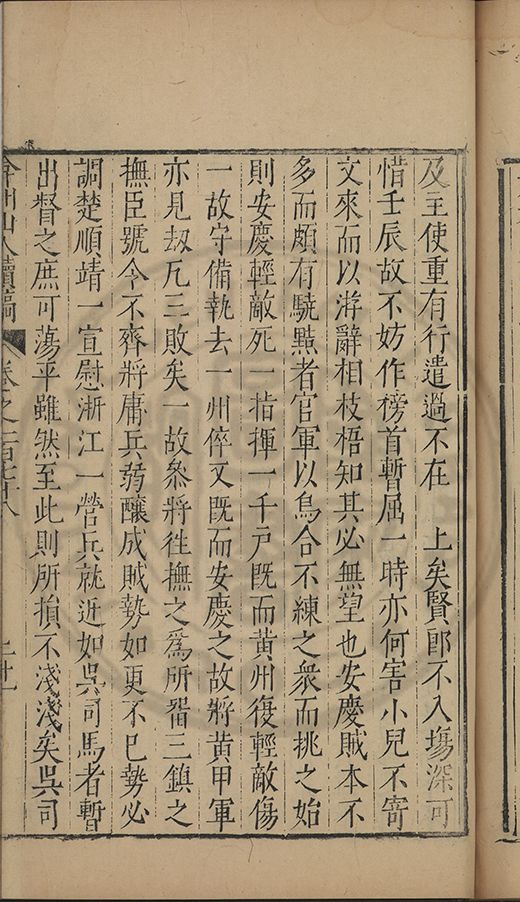 及主使重有行遣過不在　上矣賢郎不入塲深可
惜壬辰故不妨作榜首暫屈一時亦何害小兒不寄
文來而以游辭相枝梧知其必無望也安慶賊本不
多而頗有驍黠者官軍以烏合不練之衆而挑之始
則安慶輕敵死一指揮一千戶既而黃州復輕敵傷
一故守備執去一州倅又既而安慶之故將黃甲軍
亦見刼凡三敗矣一故叅將徃撫之爲所畱三鎮之
撫臣號令不齊將庸兵弱釀成賊勢如更不已勢必
調楚順靖一宣慰浙江一營兵就近如吳司馬者暫
出督之庶可蕩平雖然至此則所損不淺淺矣吳司
弇州山人續稿 卷之一百七十八